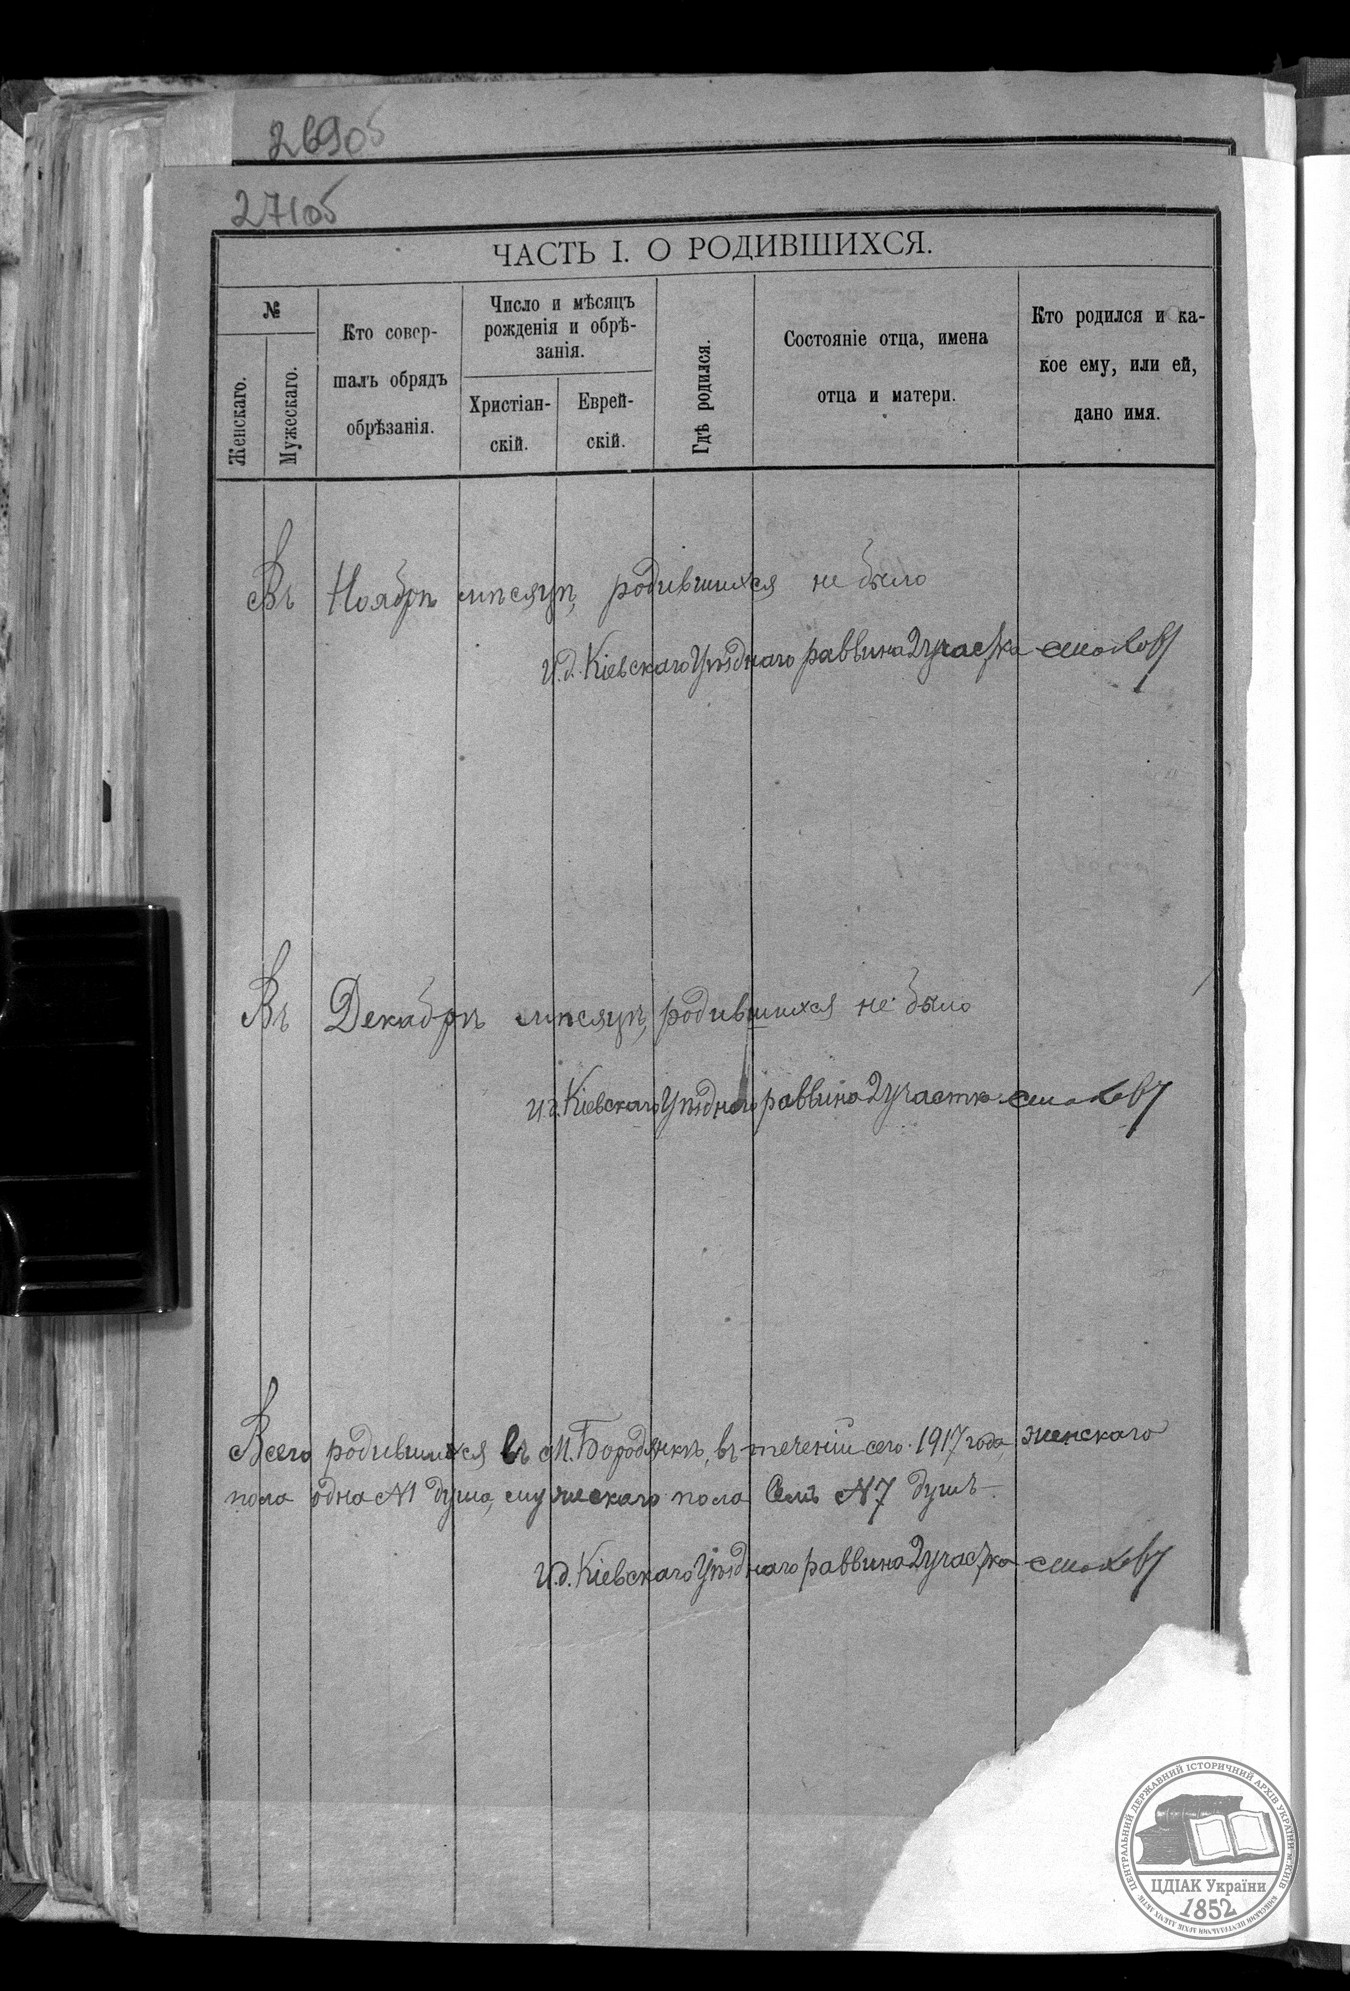 269об
271об
ЧАСТЬ I. О РОДИВШИХСЯ.
№
Женскаго.
Мужескаго.
Кто совер-
шалъ обрядъ
обрѣзанія.
Число и мѣсяцъ
рожденія и обрѣ-
занія.
Христіан-
скій.
Еврей-
скій.
Гдѣ родился.
Состояніе отца, имена
отца и матери.
Кто родился и ка-
кое ему, или ей,
дано имя.
Въ Ноябрѣ мѣсяцѣ, родившихся не было
И.д. Кіевскаго Уѣзднаго раввина 2 участка
Въ Декабрѣ мѣсяцѣ, родившихся не было
И.д. Кіевскаго Уѣзднаго раввина 2 участка
Всего родившихся въ М. Бородянкѣ, въ теченіи сего 1917 года, женскаго
пола одна №1 душа, мужескаго пола Семь №7 душъ
И.д. Кіевскаго Уѣзднаго раввина 2 участка
ЦЕНТРАЛЬНИЙ ДЕРЖАВНИЙ ІСТОРИЧНИЙ АРХІВ УКРАЇНИ, м. КИЇВ
ЦДІАК України
1852